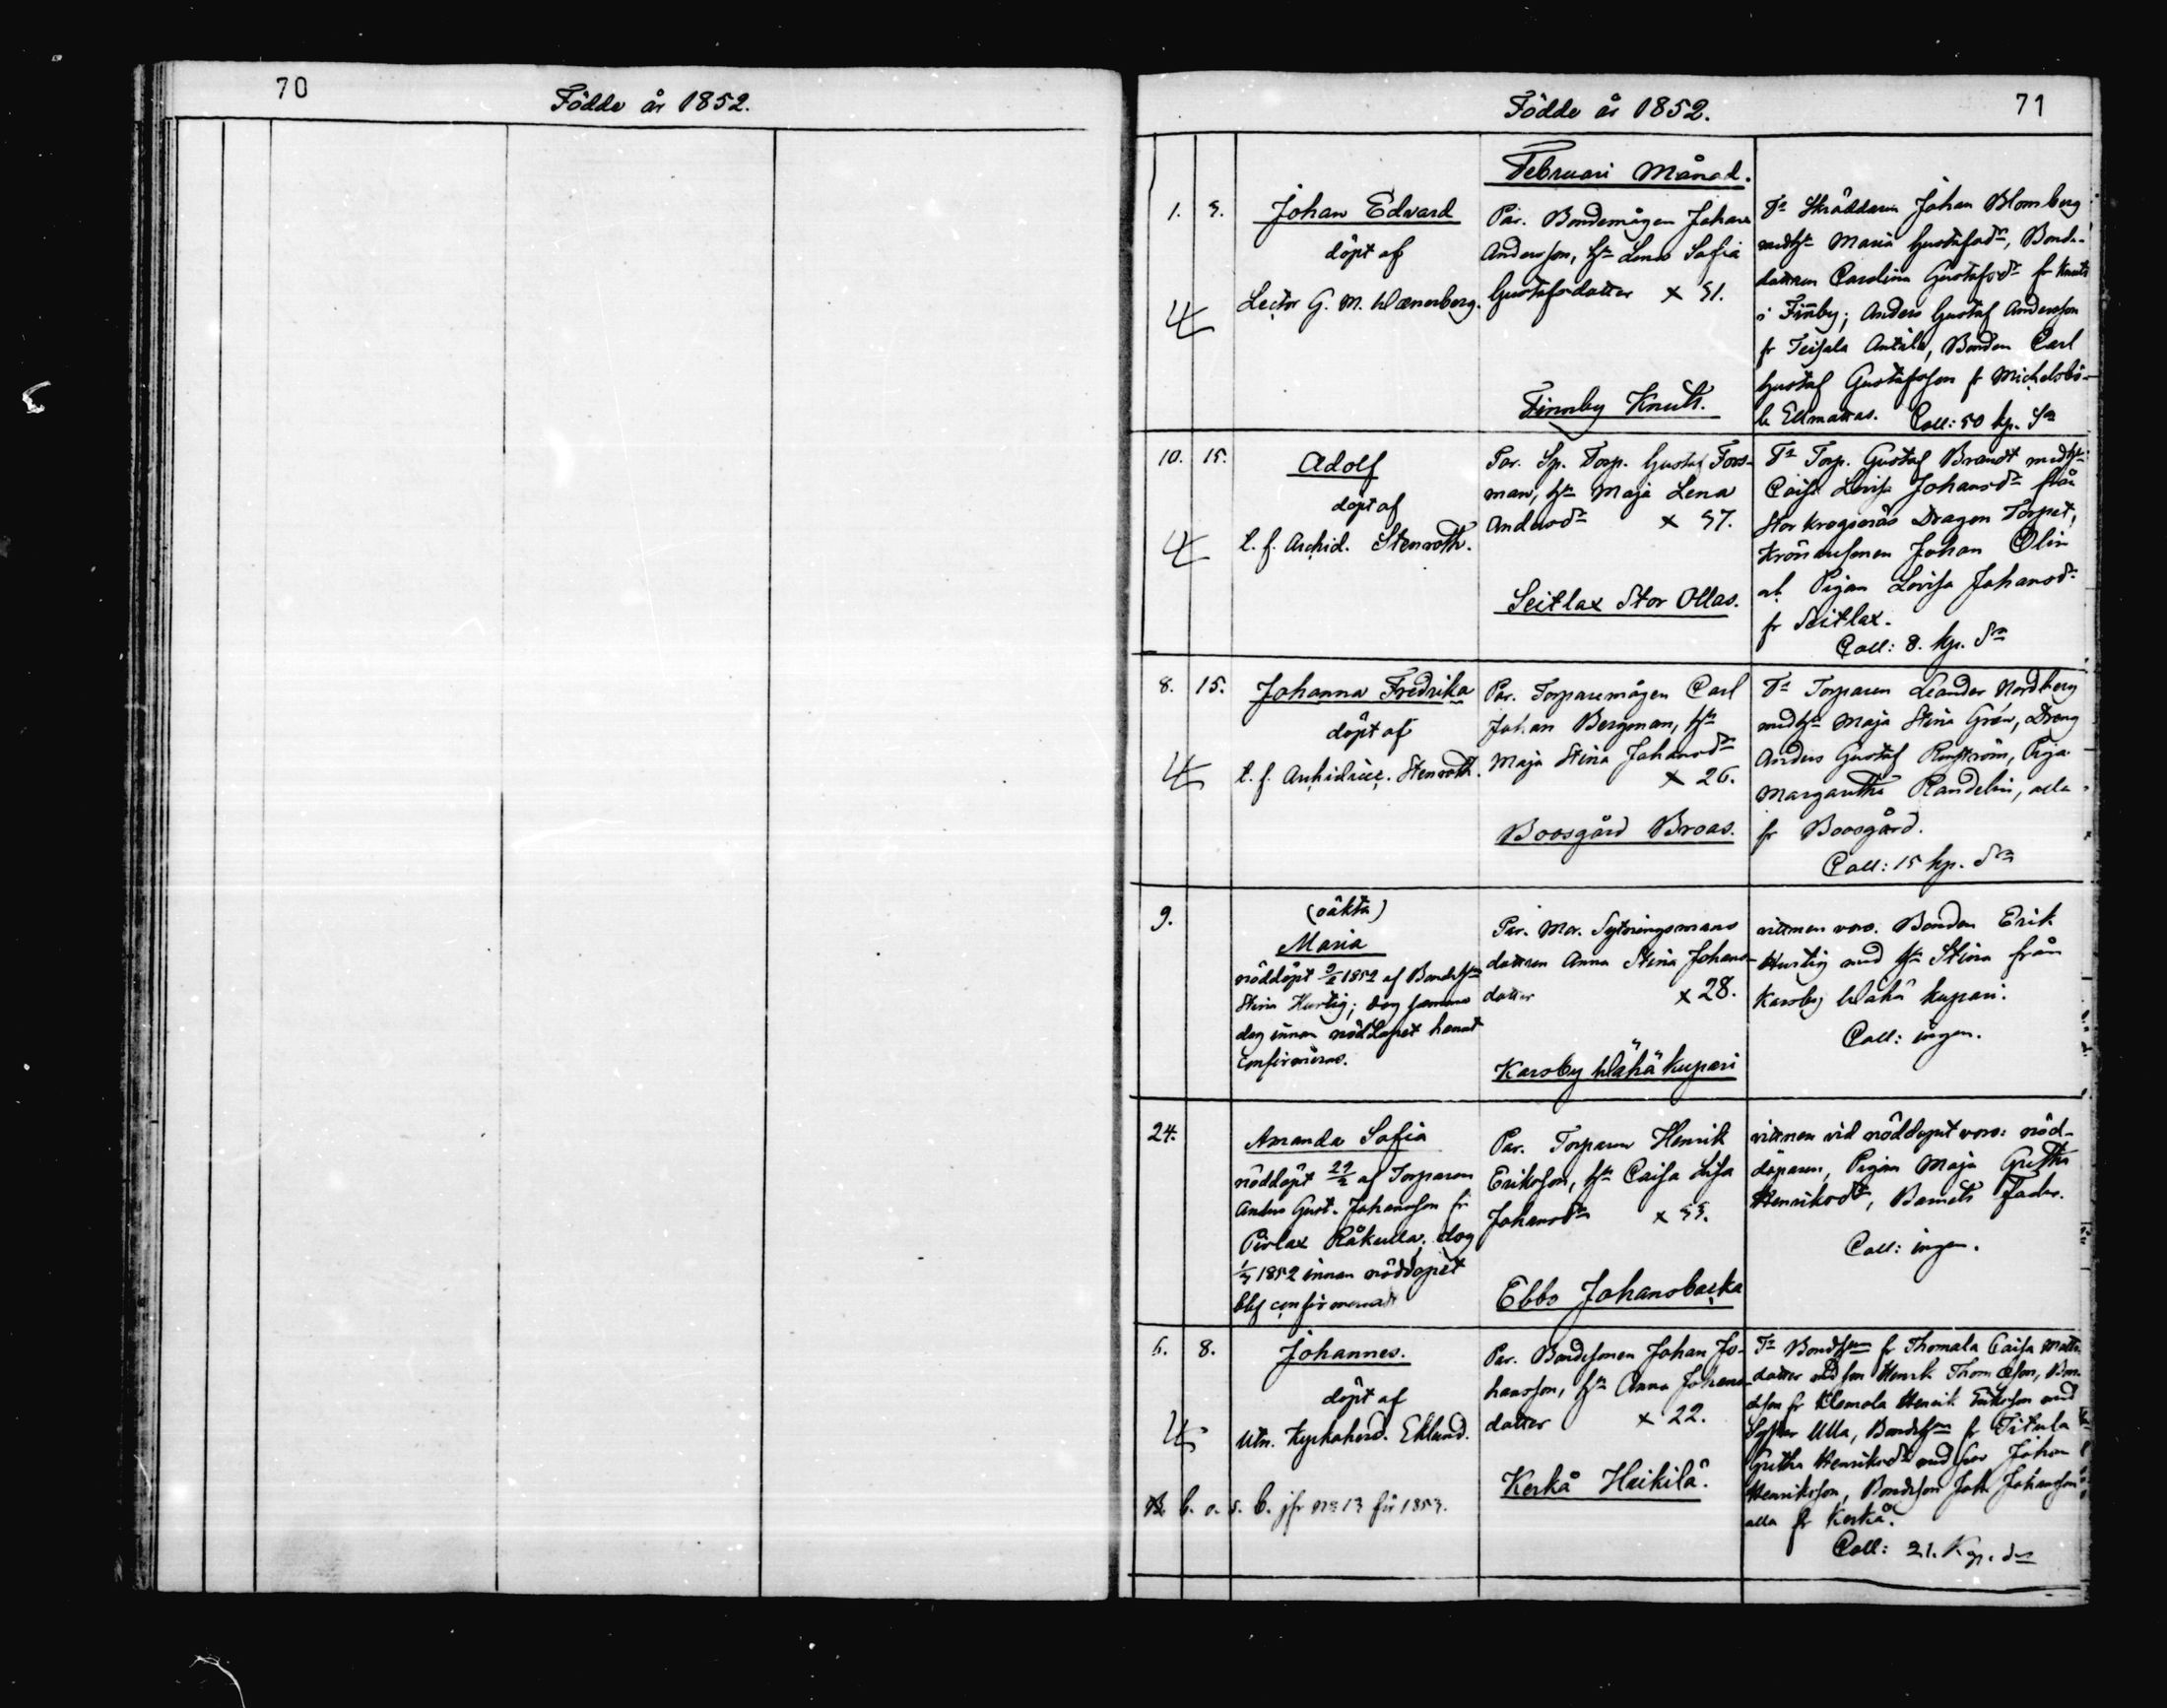 70
Födde år 1852.
Födde år 1852.
71
Februari Månad.
1. 3.
Johan Edvard
döpt af
Lector G. M. Wænerberg.
Par. Bondemågen Johan
Andersson, hn Lena Sofia
Gustafsdotter x 31.
Finnby Knuts.
Fr Skräddarn Johan Blomberg
med hn Maria Gustafsdr, Bonde-
dottren Carolina Gustafsdr fr Knuts
i Finnby; Anders Gustaf Andersson
fr Teisala Antila, Bonden Carl
Gustaf Gustafsson fr Michelsbö-
le Ellmattas. Coll: 50 kp. Sr
10. 15.
Adolf
döpt af
t. f. Archid. Stenroth.
Par. Sp. Torp. Gustaf Fors-
man, hn Maja Lena
Andersdr x 37.
Seitlax Stor Ollas.
Fr Torp. Gustaf Brandt med hn
Caisa Lovisa Johansdr från
Stor Krogsnäs Dragon Torpet,
Johan Olin
Pigan Lovisa Johansdr
fr Seitlax.
Coll: 8. kp. Sr
8. 15.
Johanna Fredrika
döpt af
t. f. Stenroth.
Par. Torparemågen Carl
Johan Bergman, hn
Maja Stina Johansdr
x 26.
Boosgård Broas.
Fr Torparen Leander Nordberg
med hn Maja Stina Grön, Dreng
Anders Gustaf Piga
Margaretha Randelin, alla
fr Boosgård.
Coll: 15 kp. Sr
9.
(oäkta)
Maria
nöddöpt 9/2 1852 af
Stina Hurtig; dog samma
dag innan nöddopet hunnit
confirmeras.
Par. Mor. Sytningsmans
dottren Anna Stina Johans-
dotter x 28.
Karsby Wähä kupari
vittnen voro. Bonden Erik
Hurtig med hn Stina från
Karsby Wähä kupari.
Coll: ingen.
24.
Amanda Sofia
nöddöpt 29/2 af Torparen
Anders Gust. Johansson fr
Pirlax Råkulla; dog
1/3 1852 innan nöddopet
blef confirmeradt
Par. Torparen Henrik
Eriksson, hn Caisa Lisa
Johansdr x 33.
Ebbo Johansbacka
vittnen vid nöddopet voro: nöd-
döparen, Pigan Maja Gretha
Henriksdr, Barnets Fader.
Coll: ingen.
6. 8.
Johannes.
döpt af
Utn. Kyrkoherd. Eklund.
b. o. s. b. jfr No 13 för 1853.
Par. Bondesonen Johan Jo-
hansson, hn Anna Johans-
dotter x 22.
Kerkå Heikilä.
fr Thomala Caisa Matts-
dotter med son Henrik Thomasson, Bon-
deson fr Klemola Henrik Eriksson med
Syster Ulla, fr Titula
Gretha Henriksdr med Johan
Henriksson, Bondeson Joh. Johansson
alla fr Kerkå.
Coll: 21. Kop. Sr